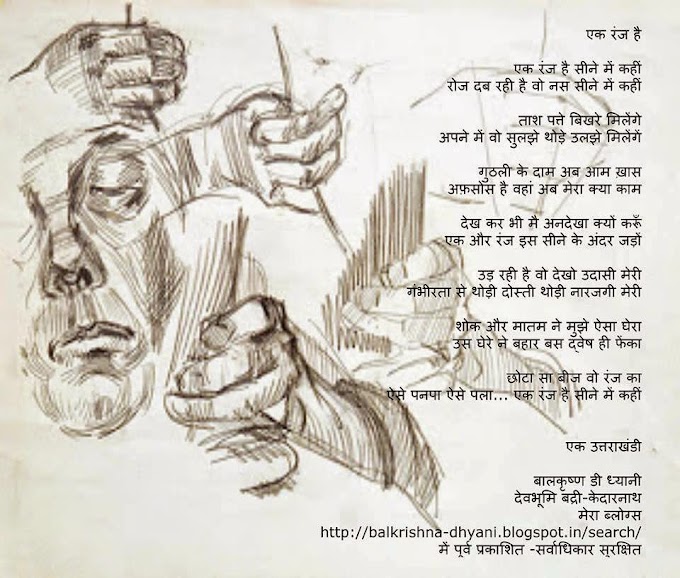 एक रंज है
एक रंज है सीने में कहीं
रोज दब रही है वो नस सीने में कहीं
ताश पत्ते बिखरे मिलेंगे
अपने में वो सुलझे थोड़े उलझे मिलेंगे
गुठली के दाम अब आम ख़ास
अफ़सोस है वहां अब मेरा क्या काम
देख कर भी मैं अनदेखा क्यों करूँ
एक और रंज इस सीने के अंदर जड़ों
उड़ रही है वो देखो उदासी मेरी
गंभीरता से थोड़ी दोस्ती थोड़ी नारजगी मेरी
शोक और मातम ने मुझे ऐसा घेरा
उस घेरे ने बहार बस द्वेष ही फेंका
छोटा सा बीज वो रंज का
ऐसे पनपा ऐसे पला... एक रंज है सीने में कहीं
एक उत्तराखंडी
बालकृष्ण डी ध्यानी
देवभूमि बद्री-केदारनाथ
मेरा ब्लोग्स
http://balkrishna-dhyani.blogspot.in/search/
में पूर्व प्रकाशित -सर्वाधिकार सुरक्षित